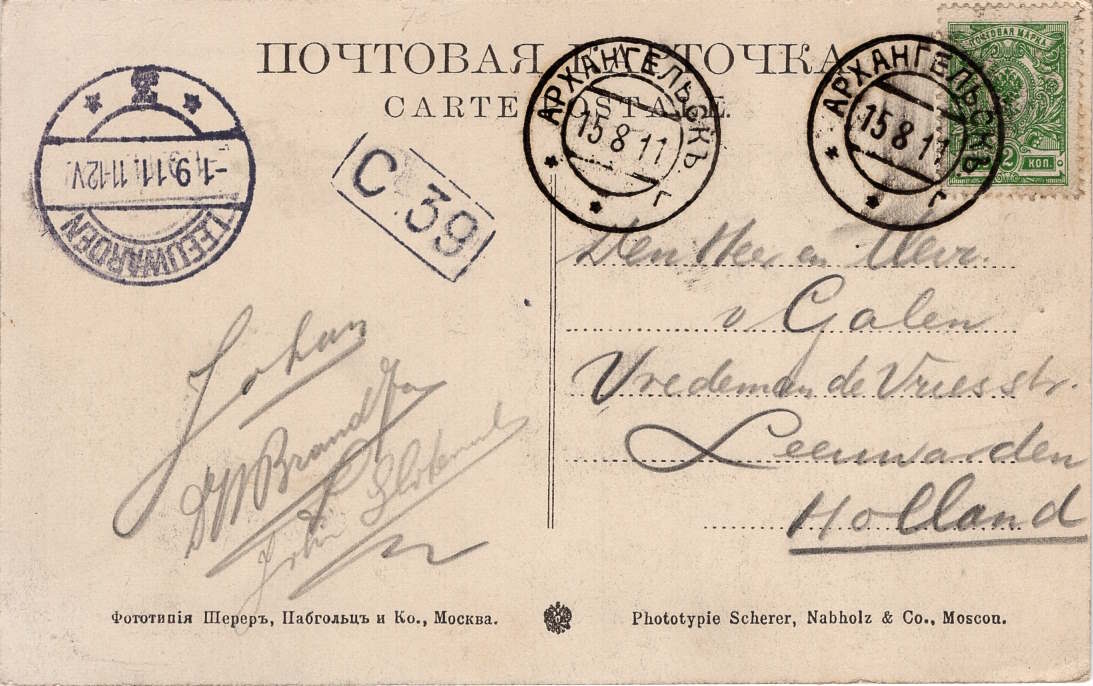 ПОЧТОВАЯ КАРТОЧКА
CARTE POSTALE
ПОЧТОВАЯ МАРКА
2 КОП.
АРХАНГЕЛЬСКЪ
15 8 11
г
АРХАНГЕЛЬСКЪ
15 8 11
г
LEEUWARDEN
-1.9.11 11-12V
C 39
Den Heer en Mevr.
v Galen
Vredeman de Vriesstr.
Leeuwarden
Holland
Johan
Brandsma
John
Фототипія Шереръ, Набгольцъ и Ко., Москва.
Phototypie Scherer, Nabholz & Co., Moscou.